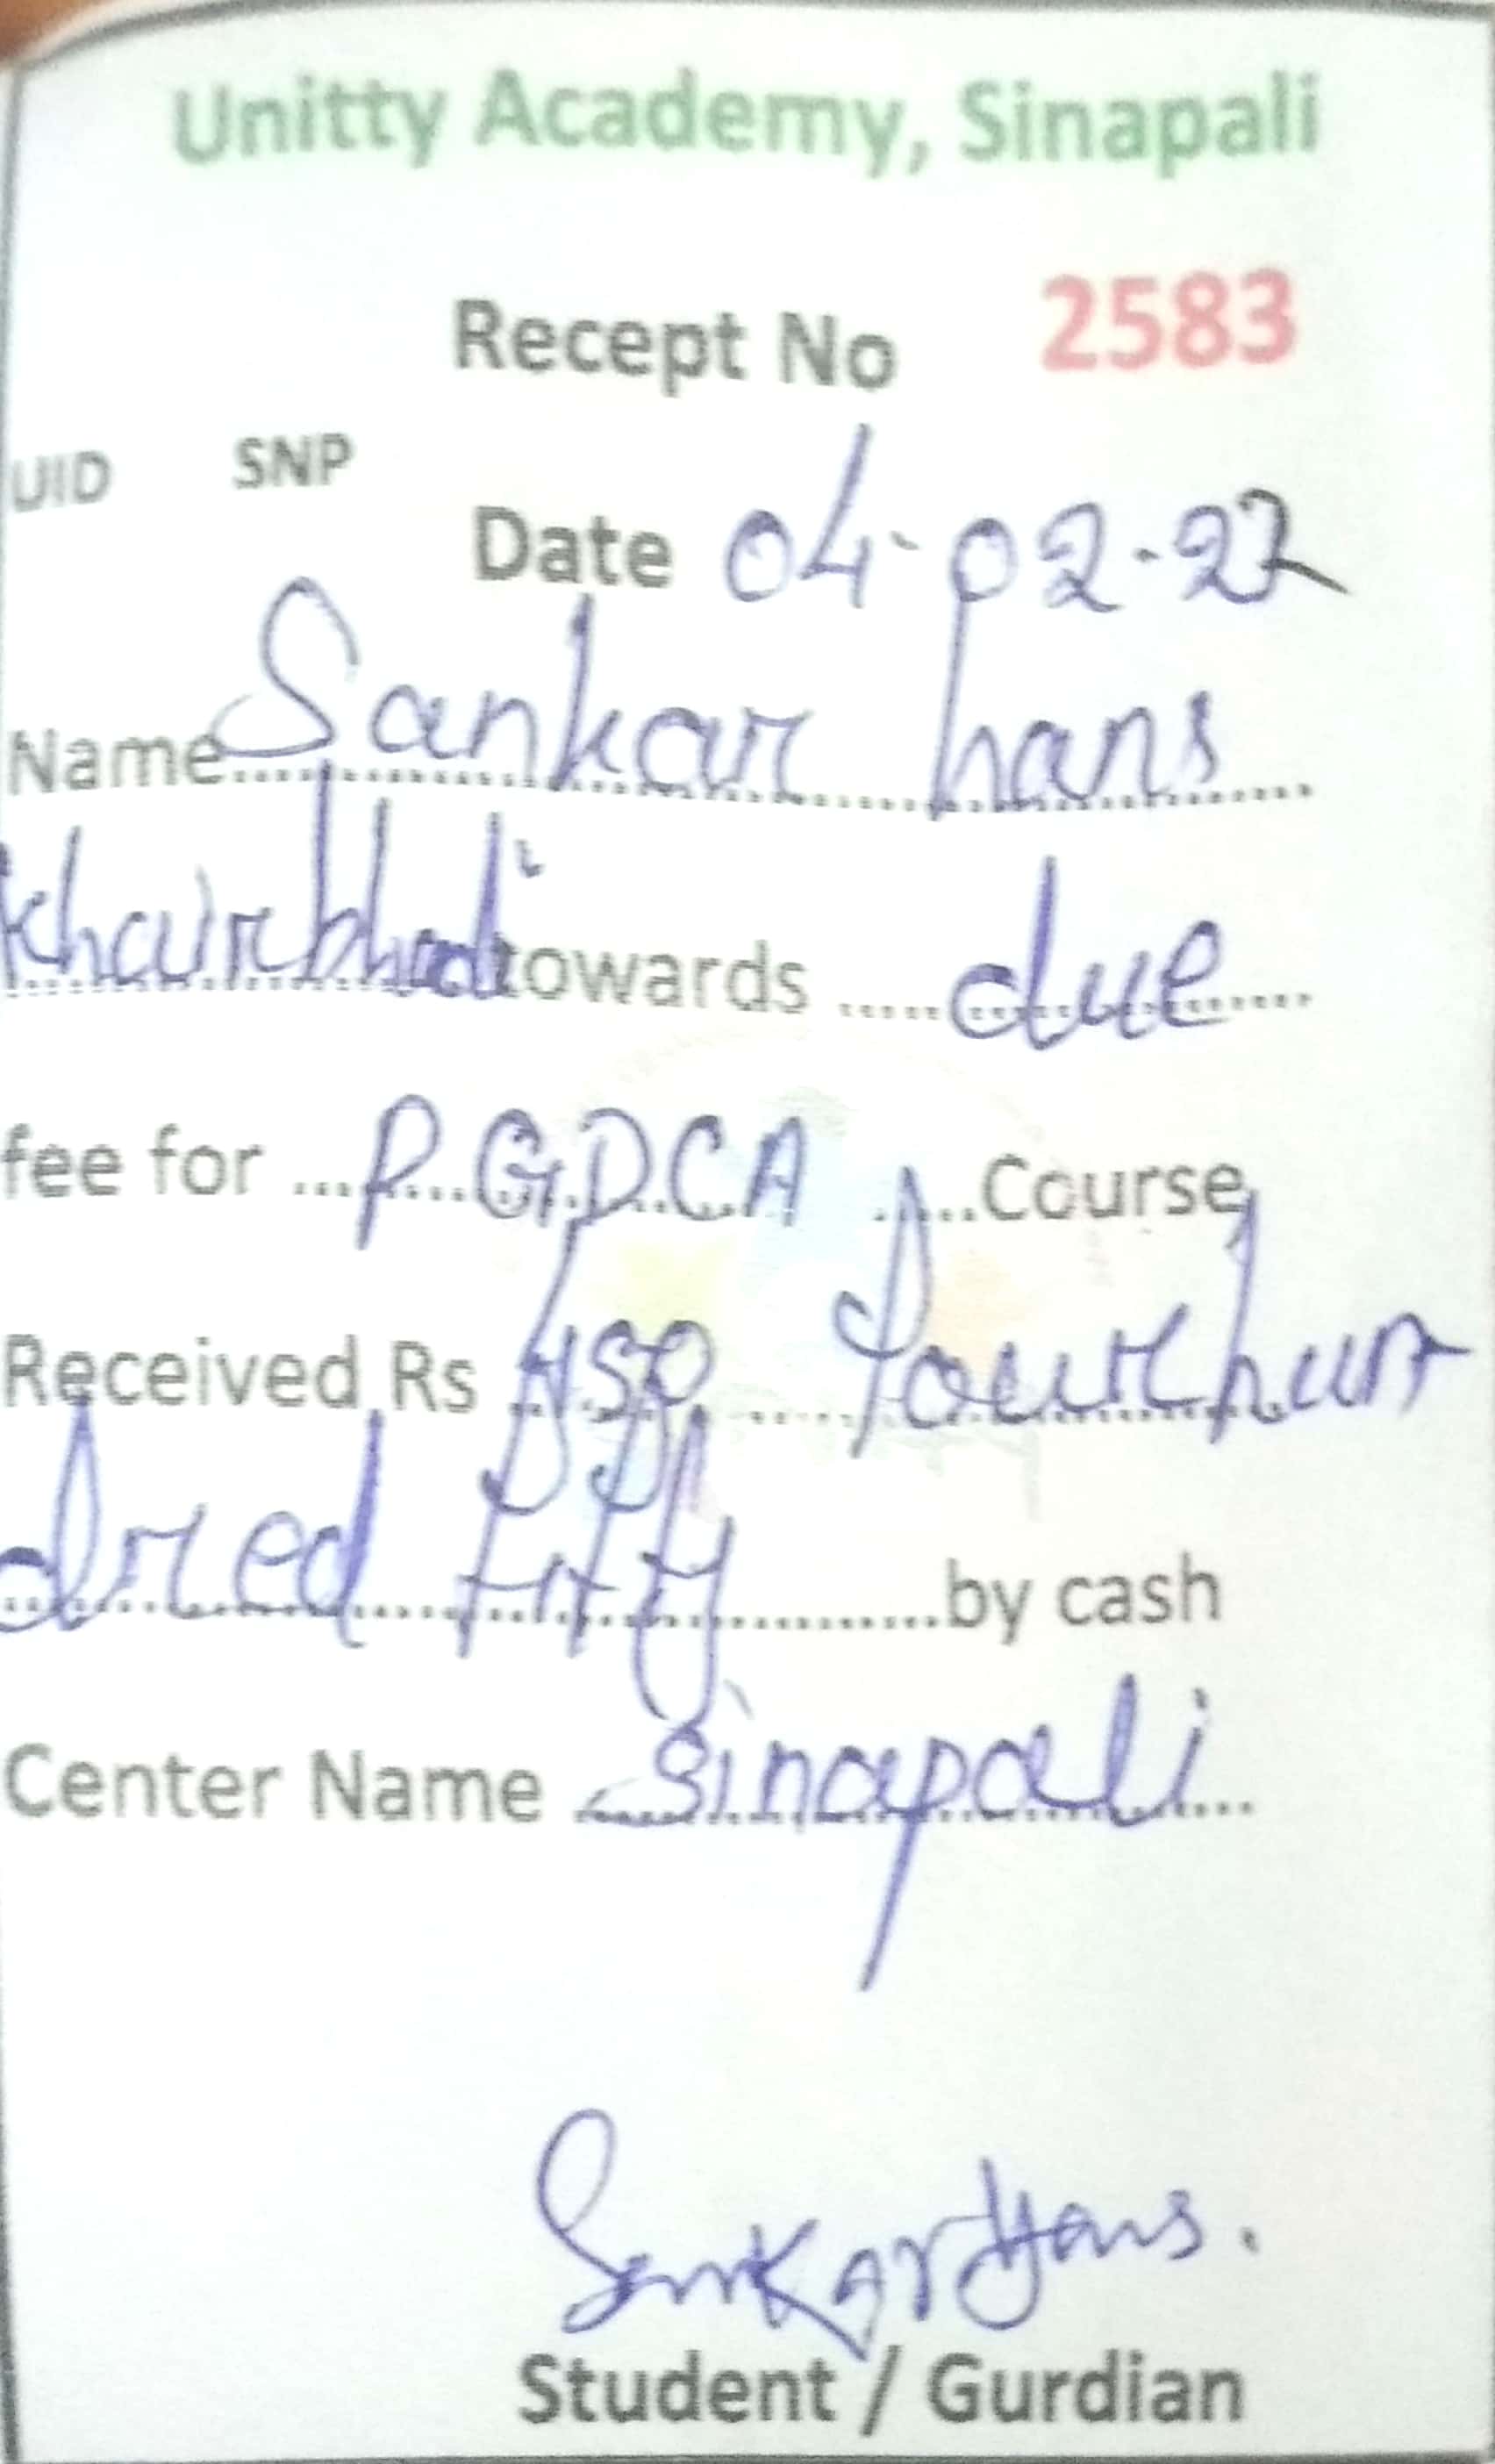 Unitty Academy, Sinapali
Recept No 2583
UID SNP
Date 04-02-22
Name Sankar hans
Khairbhadi towards ..... due
fee for ... PGDCA .....Course,
Received Rs 450 ..... fourhun
dred fifty ..........by cash
Center Name Sinapali
Sankar Hans.
Student / Gurdian